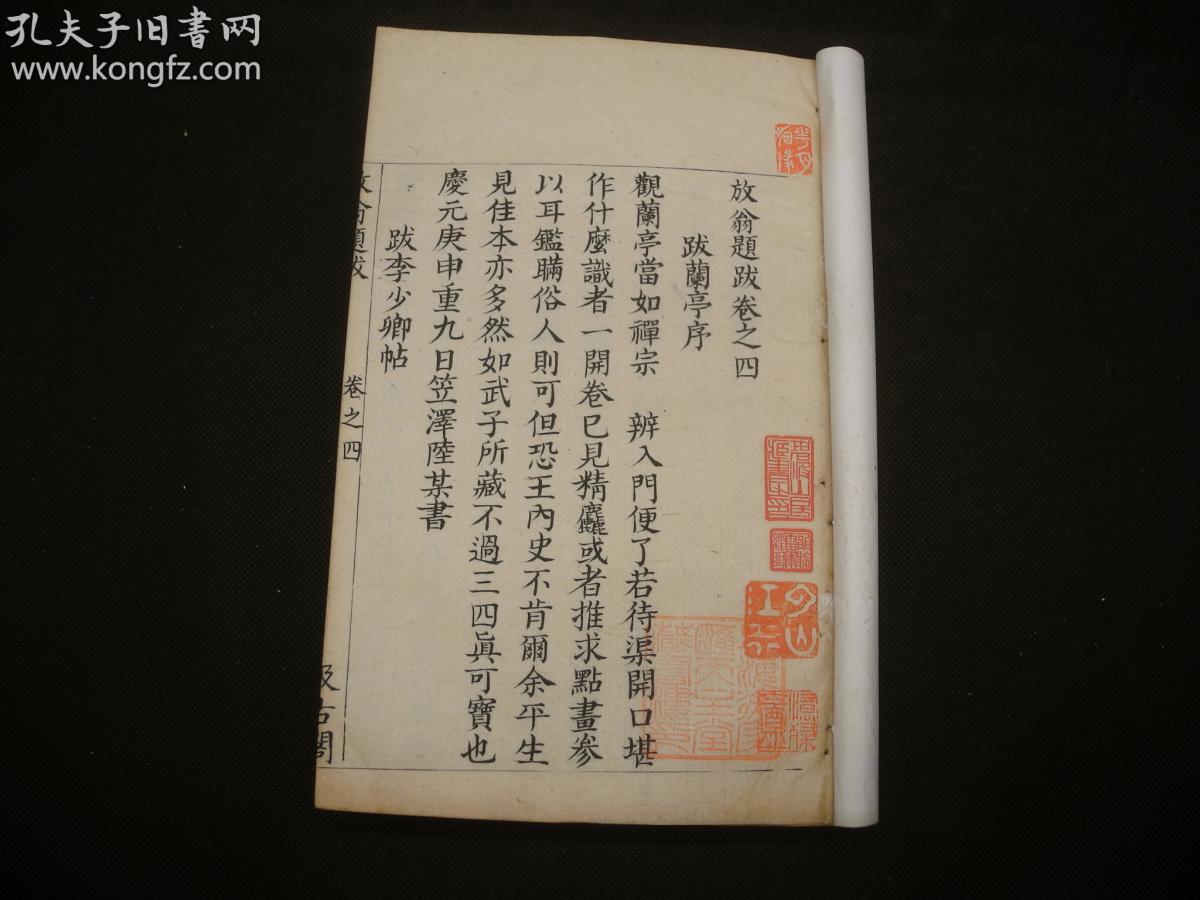 孔夫子旧书网
www.kongfz.com
放翁題跋卷之四
跋蘭亭序
觀蘭亭當如禪宗 辨入門便了若待渠開口堪
作什麼識者一開卷已見精麤或者推求點畫參
以耳鑑瞞俗人則可但恐王內史不肯爾余平生
見佳本亦多然如武子所藏不過三四眞可寶也
慶元庚申重九日笠澤陸某書
跋李少卿帖
放翁題跋
卷之四
汲古閣